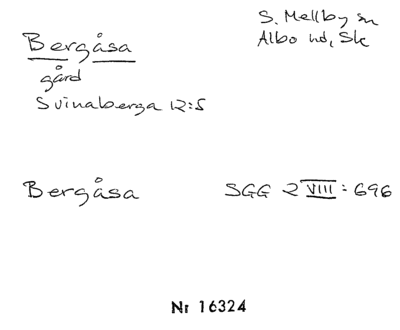 Bergåsa
gård
Svinaberga 12:5
S. Mellby sn
Albo hd, Sk
Bergåsa
SGG 2 VIII: 696
Nr 16324